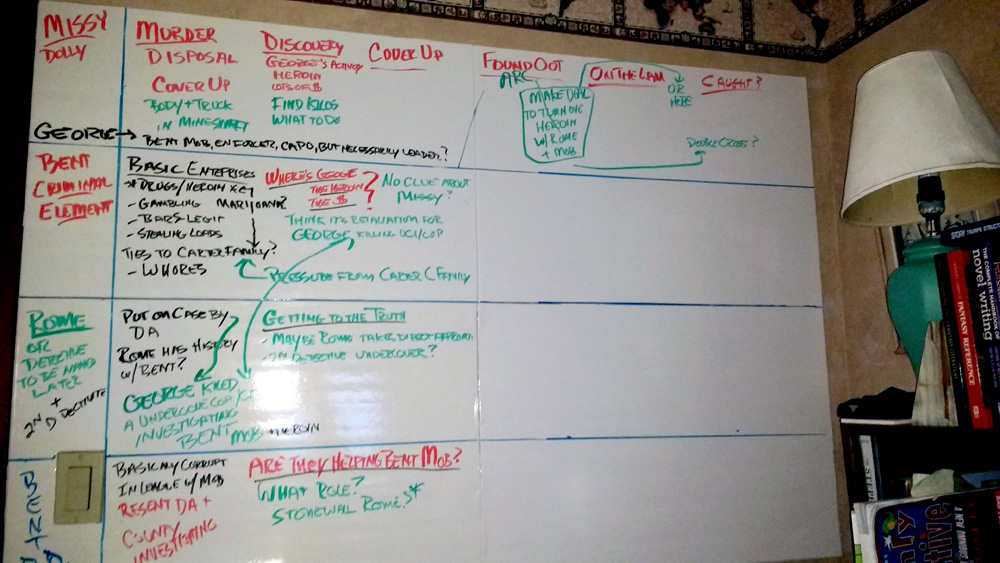 MISSY
DOLLY
MURDER
DISPOSAL
COVER UP
BODY + TRUCK
IN MINESHAFT
DISCOVERY
GEORGE'S ACTIVITY
HEROIN
LOTS OF $
FIND KILOS
WHAT TO DO
COVER UP
FOUND OUT
ARC
MAKE DEAL
TO TURN OVER
HEROIN
W/ROME
+ MOB
ON THE LAM
OR
HERE
CAUGHT?
DOUBLE CROSS?
GEORGE → BENT MOB, ENFORCER, CAPO, BUT NECESSARILY LEADER?
BENT
CRIMINAL
ELEMENT
BASIC ENTERPRISES
* DRUGS/HEROIN KEY
- GAMBLING MARIJUANA?
- BARS LEGIT
- STEALING LOADS
TIES TO CARTER FAMILY?
- WHORES
WHERE'S GEOGE
THE HEROIN
THE $
?
NO CLUE ABOUT
MISSY?
THINK IT'S RETALIATION FOR
GEORGE KILLING UC/COP
PRESSURE FROM CARTER C FAMILY
ROME
OR
DETECTIVE
TO BE NAMED
LATER
+
2ND DETECTIVE
PUT ON CASE BY
DA
ROME HAS HISTORY
W/BENT?
GEORGE KILLED
A UNDERCOVER COP
INVESTIGATING
BENT MOB + HEROIN
GETTING TO THE TRUTH
- MAYBE ROME TAKES DIRECT APPROACH
- 2ND DETECTIVE UNDERCOVER?
BASICALLY CORRUPT
IN LEAGUE W/MOB
RESENT DA +
COUNTY/
INVESTIGATING
ARE THEY HELPING BENT MOB?
WHAT ROLE?
STONEWALL ROME?*
STORY TRUMPS STRUCTURE
THE COMPLETE HANDBOOK OF
novel writing
FANTASY REFERENCE
STEPH
A NEW